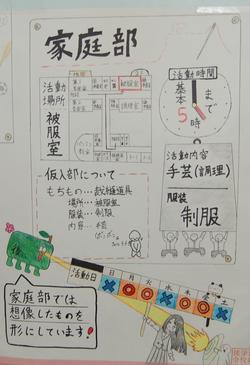 家庭部
活動
場所
被服室
被服室
活動時間
基本
5時
まで
活動内容
手芸(調理)
服装
制服
仮入部について
もちもの…裁縫道具
場所…被服室
服装…制服
内容…手芸
活動日
日 月 火 水 木 金 土
家庭部では
想像したものを
形にしています!